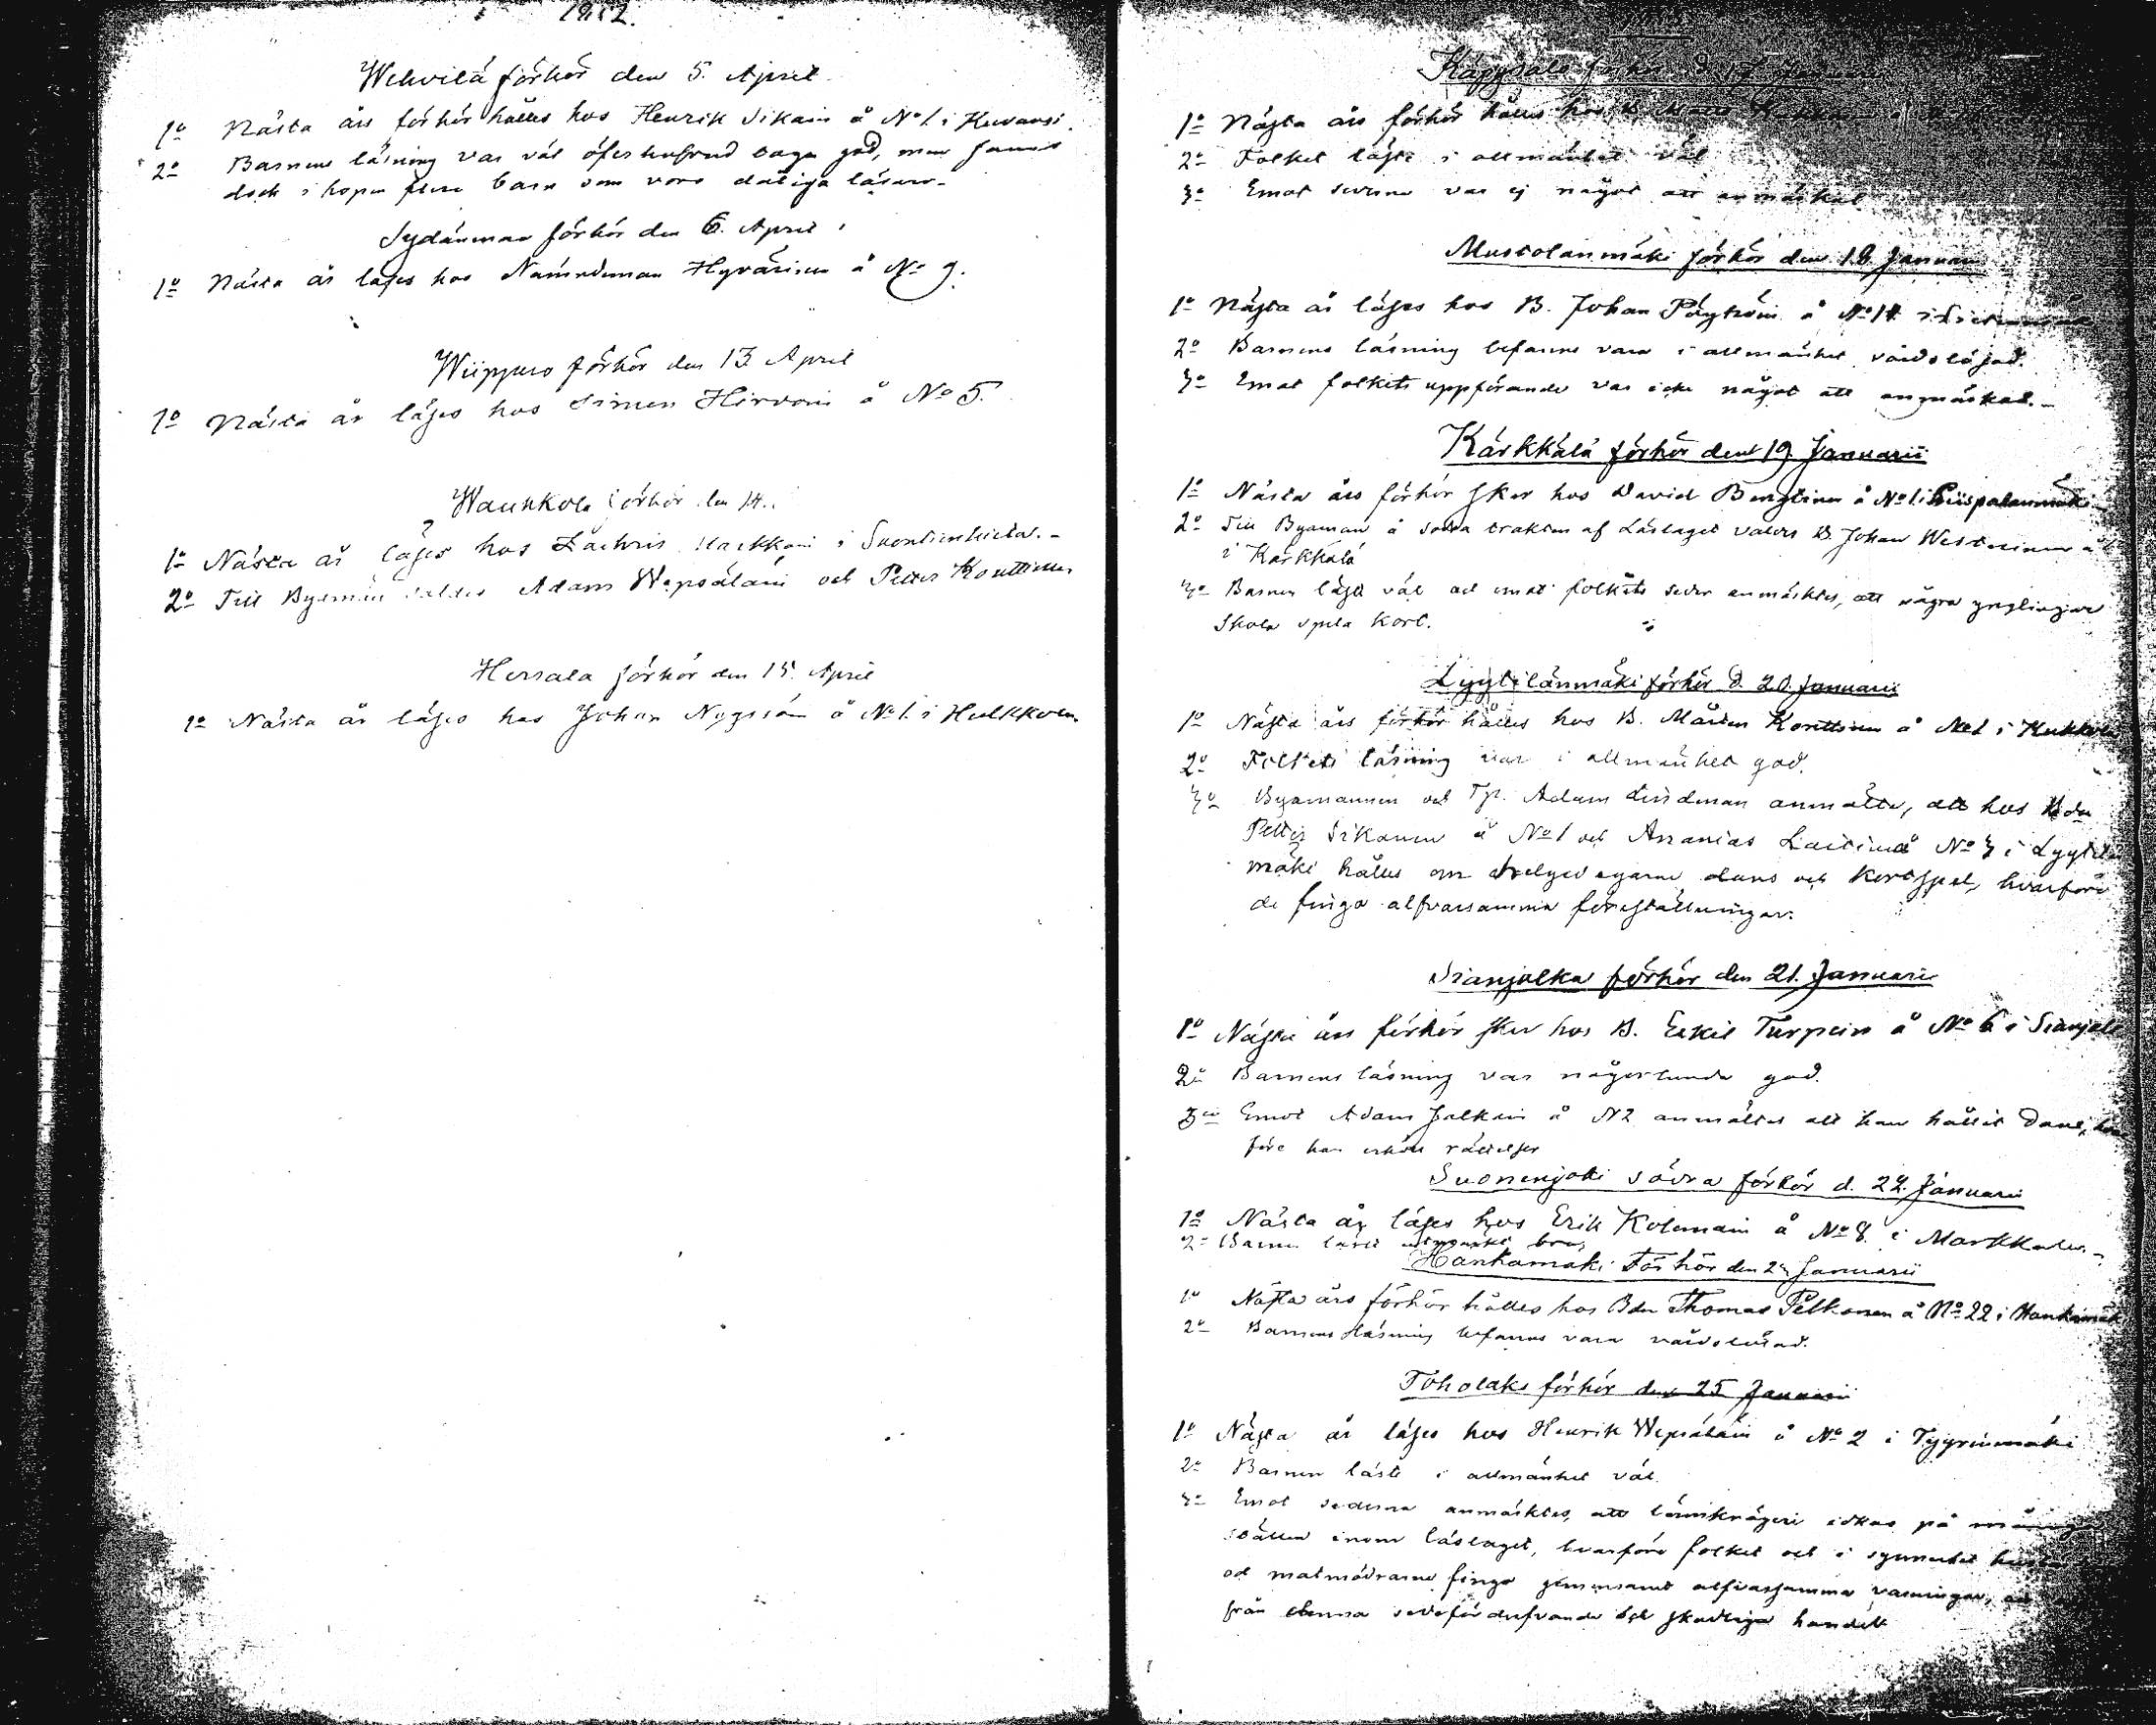 1852.
Wehvilä förhör den 5. April
1o Nästa års förhör hålles hos Henrik Sikain å No 1 i Kuvansi.
2o Barnens läsning var väl öfverhufvud taga god, men
dock i hopen flere barn som voro dåliga läsare.
Sydänmaa förhör den 6. April
1o Nästa år läses hos Nämndeman Hyvärinen å No 9.
Wiippuro förhör den 13 April
1o Nästa år läses hos Simon Hirvoin å No 5.
Waukkola förhör den 14.
1o Nästa år läses hos i Suontienhieta.
2o Till Byamän valdes Adam Wepsäläin och Petter Konttinen
Hersala förhör den 15. April
1o Nästa år läses hos Johan Nogsiäin å No 1. i Hulkkola.
Käpysalo förhör d. 17 Januari
1o Nästa års förhör hålles hos B.
2o Folket läste i allmänhet väl
3o Emot sederna var ej något att anmärka
Mustolanmäki förhör den 18 Januari
1o Nästa år läses hos B. Johan Pöyhöin å No 14 i
2o Barnens läsning befanns vara i allmänhet vårdslösad.
3o Emot folkets uppförande var icke något att anmärka.
Kärkkälä förhör den 19 Januarii
1o Nästa års förhör sker hos David Bengtinen å No 1. i Piispalanmäki
2o Till Byaman å södra trakten af Läslaget valdes B. Johan Westerinen å
i Kärkkälä
3o Barnen läste väl och emot folkets seder anmärktes, att några ynglingar
skola spela kort.
Lyytilänmäki förhör d. 20. Januarii
1o Nästa års förhör hålles hos B. Mårten Konttinen å No 1 i Kukkola
2o Folkets läsning var i allmänhet god.
3o Byamannen och Tp. Adam Lindman anmälte, att hos Bdn
Petter Sikanen å No 1 och Ananias Laitinen å No 3 i Lyytilän
mäki hålles om helgedagarne dans och kortspel, hvarföre
de fingo alfvarsamma föreställningar.
Sianjalka förhör den 21. Januarii
1o Nästa års förhör sker hos B. Eskil Turpein å No 6 i Sianjal
2o Barnens läsning var någorlunda god.
3o Emot Adam Jalkain å N 2 anmältes att han hållit Dans, hvar
före han erhöll rättelser
Suonenjoki södra förhör d. 22. Januarii
1o Nästa år läses hos Erik Kolemain å No 8. i Markkala.
2o Barnen läste utmärkt bra,
Hankamäki Förhör den 24 Januarii
1o Nästa års förhör hålles hos Bdn Thomas Pelkonen å No 22 i Hankamäki
2o Barnens läsning befanns vara vårdslösad.
Toholaks förhör den 25 Januarii
1o Nästa år läses hos Henrik Wepsäläin å No 2 i Tyyrinmäki
2o Barnen läste i allmänhet väl.
3o Emot sederna anmärktes, att lönnkrögeri idkas på många
ställen inom läslaget, hvarföre folket och i synnerhet
och matmödrarne fingo gemensamt alfvarsamma varningar,
från denna sedeförderfvande och skadliga handel